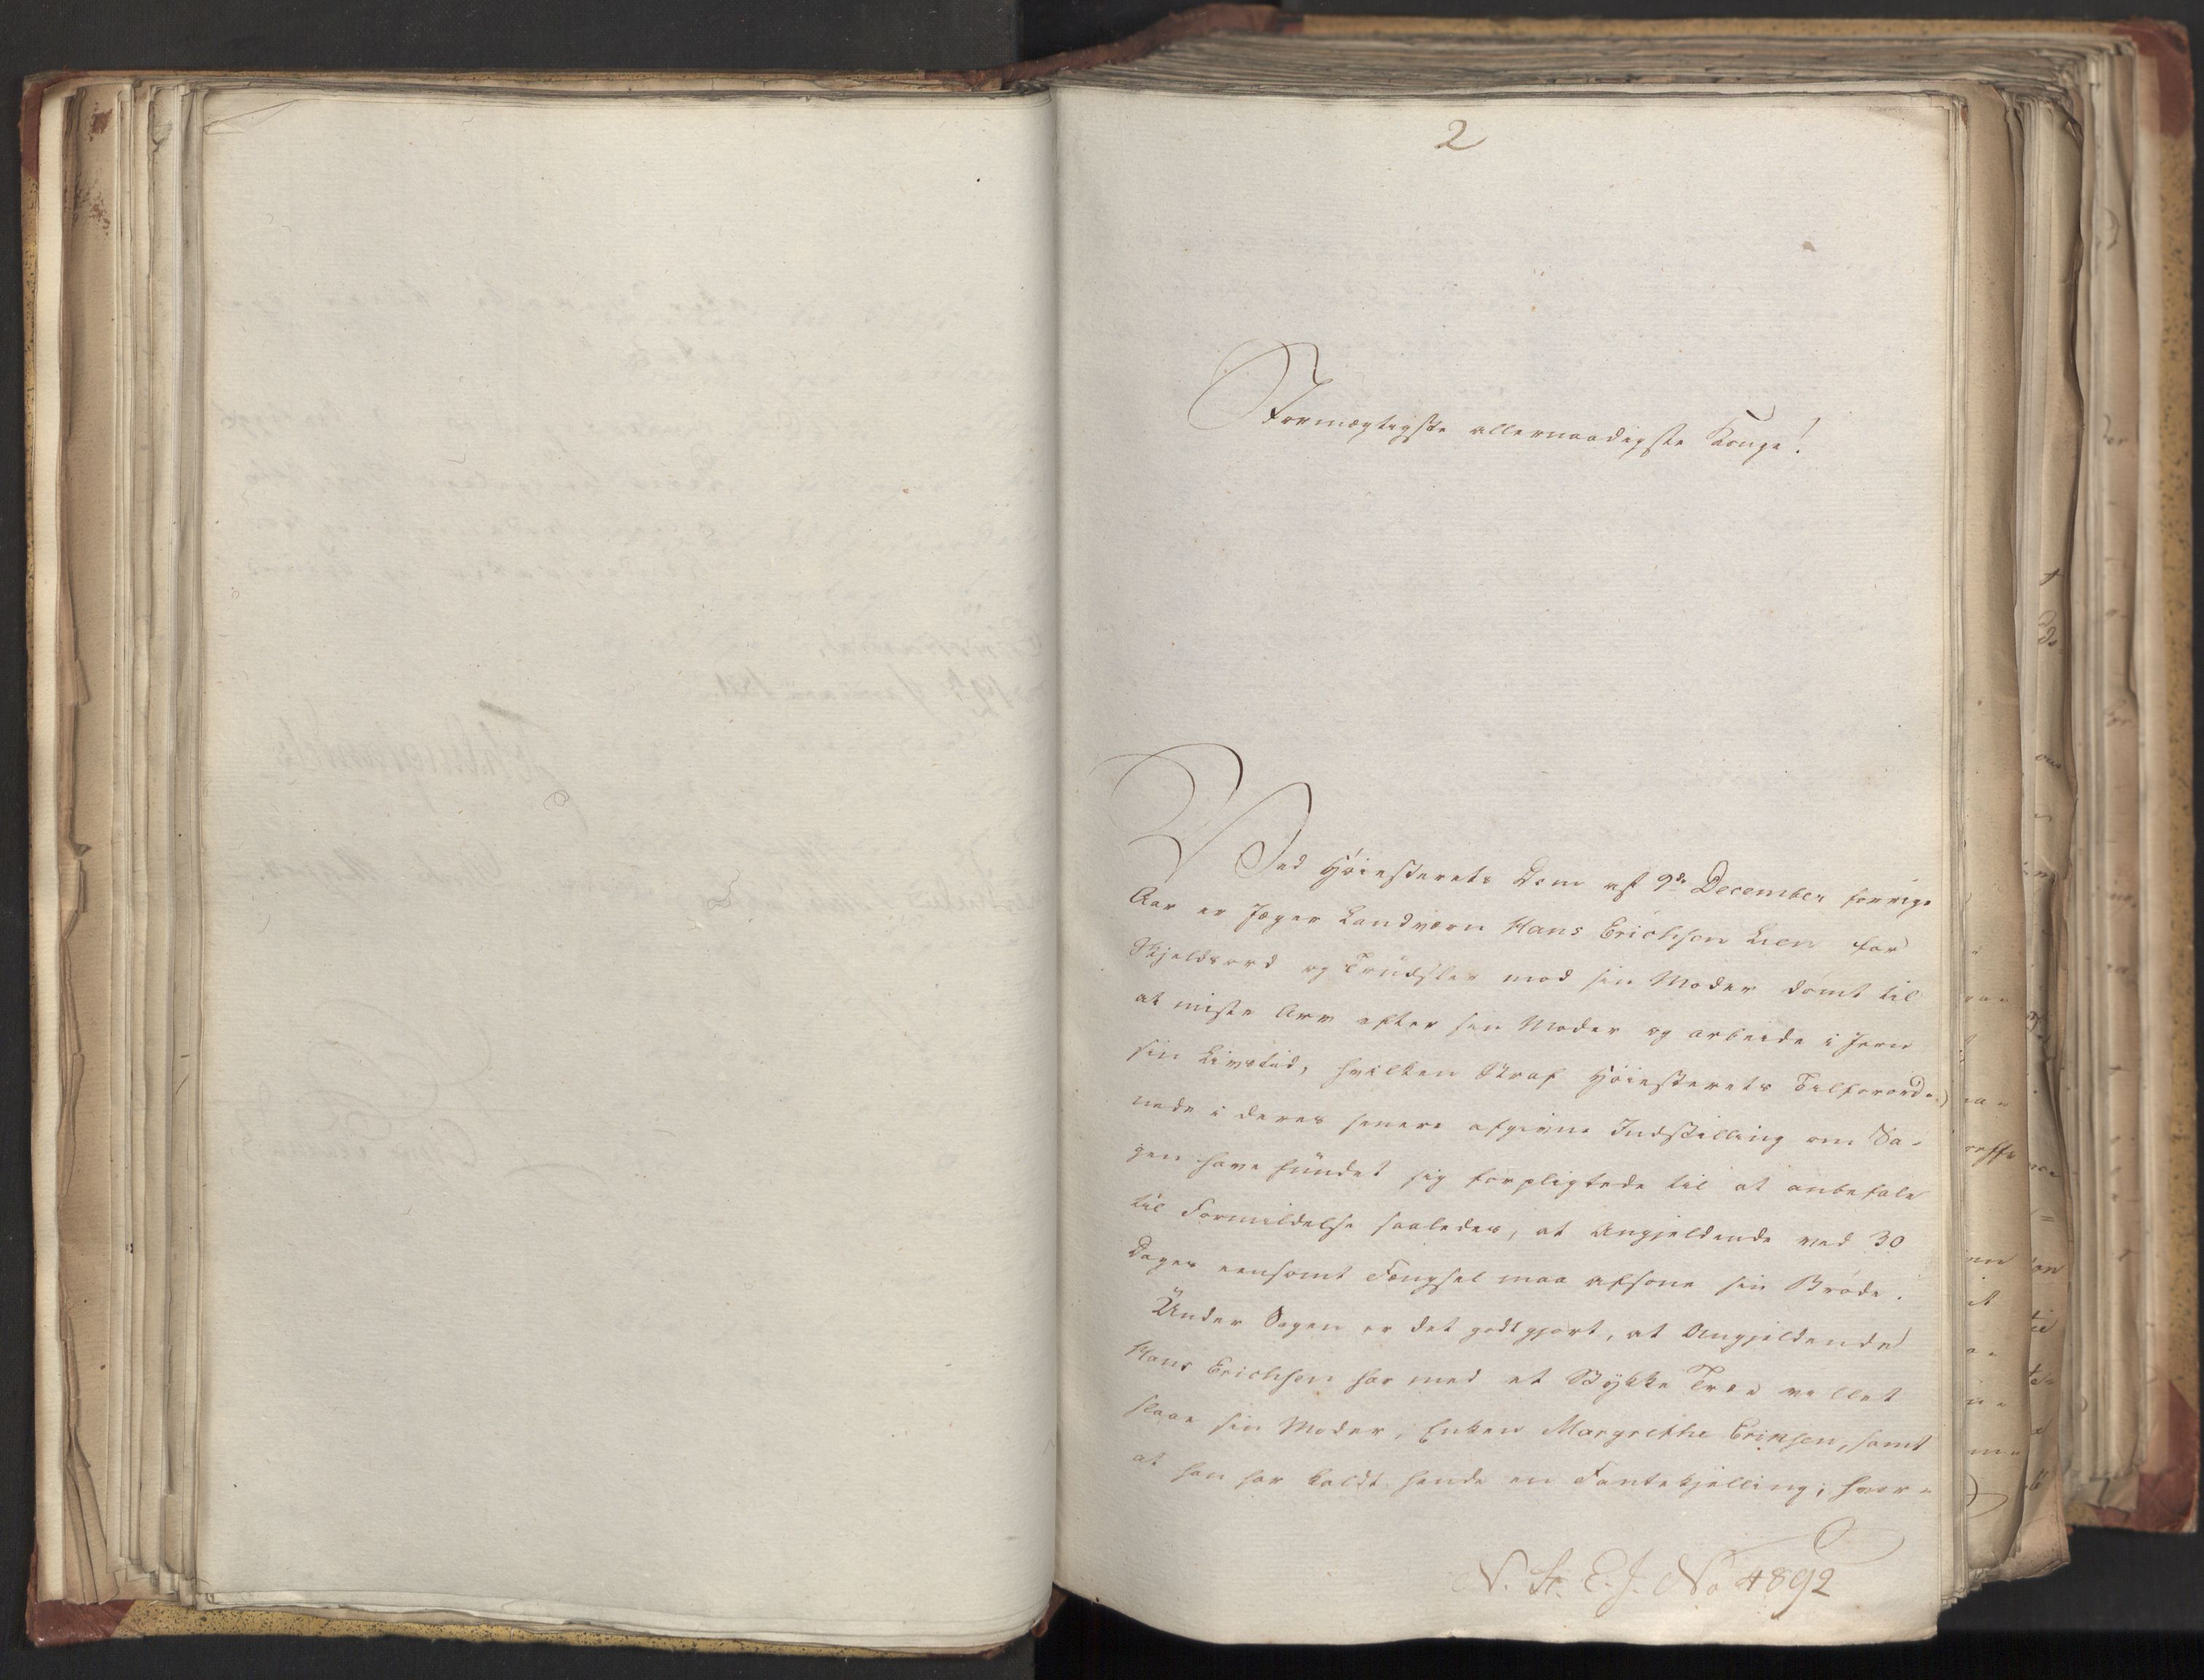 2
Formægtigste allernaadigste Konge!
Ved Höiesterets Dom af 9de December forrige
Aar er Jæger Landværn Hans Erichsen Lien for
Skjeldsord og Trudsler mod sin Moder dömt til
at miste Arv efter sin Moder og arbeide i Jern
sin Livstid, hvilken Straf Höiesterets Tilforord-
nede i deres senere afgivne Indstilling om Sa-
gen have fundet sig forpligtede til at anbefale
til Formildelse saaledes, at Angjeldende ved 30
Dages eensomt Fængsel maa afsone sin Bröde.
Under Sagen er det godtgjort, at Angjeldende
Hans Erichsen har med et Stykke Træe vellet
slaae sin Moder, Enken Margrethe Eriksen, samt
at han har kaldt hende en Fantekjelling; hvor-
N. St. E. J. No 4892